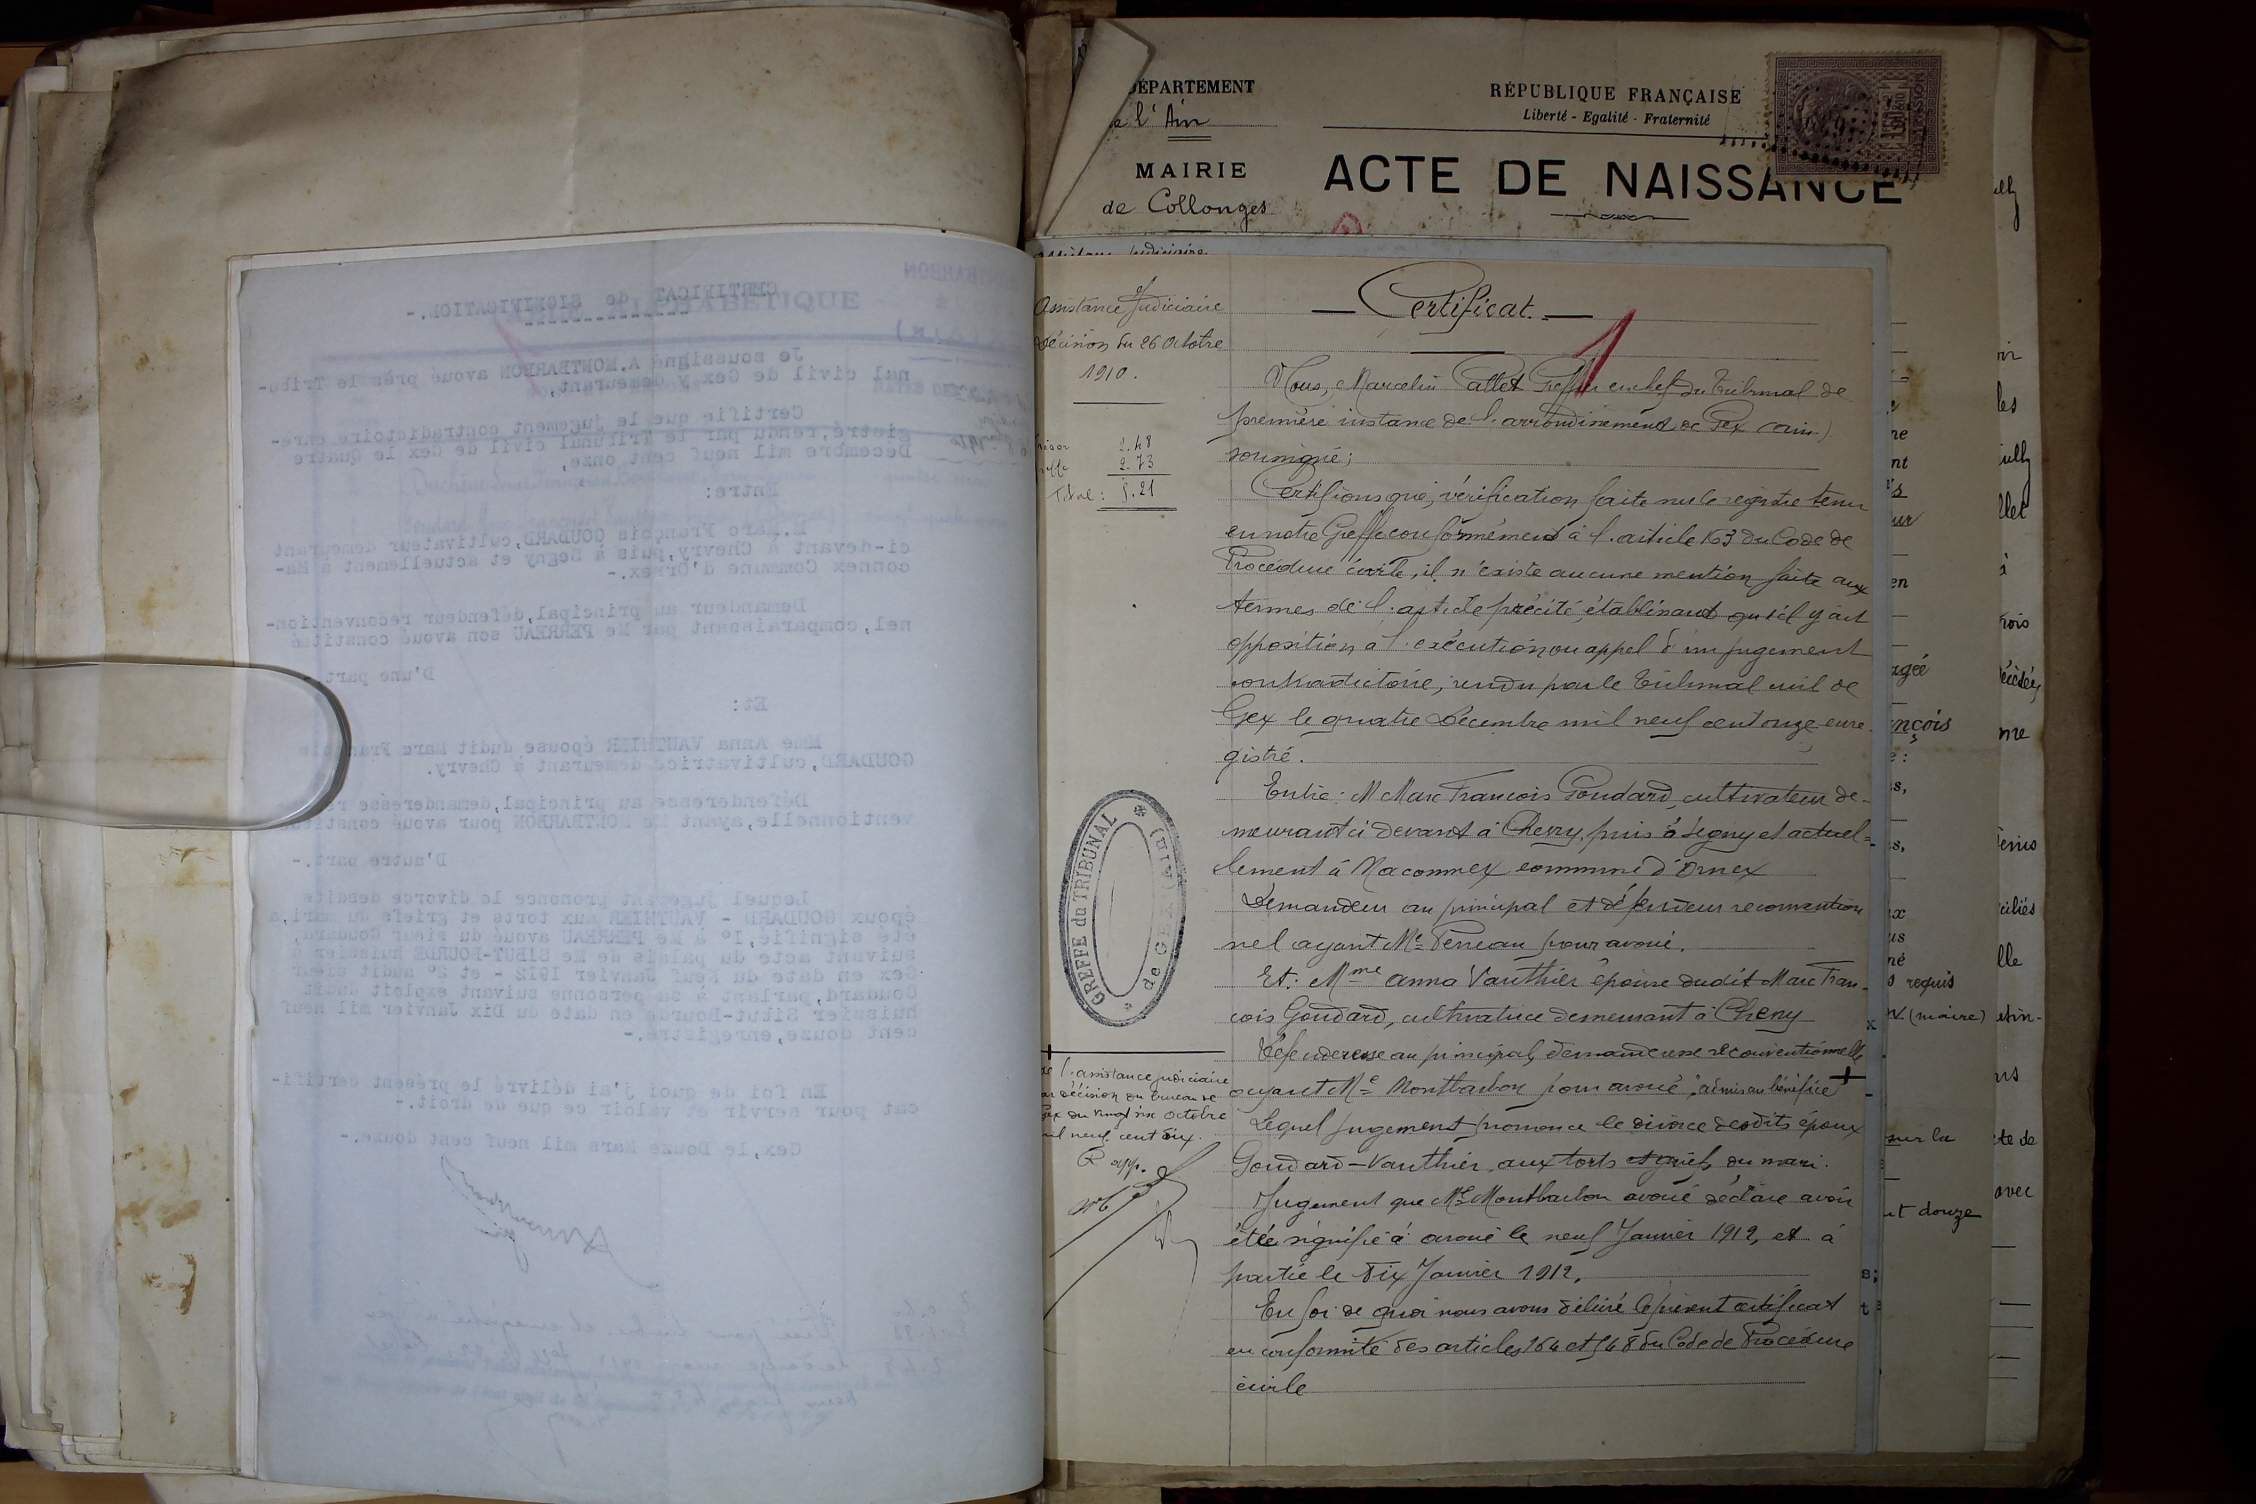 CERTIFICAT de SIGNIFICATION.-
Je soussigné A.MONTBARBON avoué près le Tribu-
nal civil de Gex y demeurant,
Certifie que le jugement contradictoire enre-
gistré, rendu par le Tribunal civil de Gex le Quatre
Décembre mil neuf cent onze,
Entre:
M.Marc François GOUDARD, cultivateur demeurant
ci-devant à Chevry, puis à Segny et actuellement à Ma-
connex Commune d'Ornex.-
Demandeur au principal, défendeur reconvention-
nel, comparaissant par Me PERREAU son avoué constitué
D'une part.-
Et:
Mme Anna VAUTHIER épouse dudit Marc
GOUDARD, cultivatrice demeurant à Chevry.
Défenderesse au principal, demanderesse
ventionnelle, ayant Me MONTBARBON pour avoué
D'autre part.-
Lequel jugement prononce le divorce desdits
époux GOUDARD - VAUTHIER aux torts et griefs du mari, a
été signifié, 1° à Me PERREAU avoué du sieur Goudard,
suivant acte du palais de Me SIBUT-BOURDE huissier à
Gex en date du Neuf Janvier 1912 - et 2° audit sieur
Goudard, parlant à sa personne suivant exploit dudit
huissier Sibut-Bourde en date du Dix Janvier mil neuf
cent douze, enregistré.-
En foi de quoi j'ai délivré le présent certifi-
cat pour servir et valoir ce que de droit.-
Gex, le Douze Mars mil neuf cent douze.-
DÉPARTEMENT
de l'Ain
MAIRIE
de Collonges
RÉPUBLIQUE FRANÇAISE
Liberté - Egalité - Fraternité
ACTE DE NAISSANCE
Assistance Judiciaire
Décision du 26 Octobre
1910.
2.48
2.73
Total: 5.21
Certificat.
1
Nous, Marcelin Pallet Greffier en chef du Tribunal de
première instance de l'arrondissement de Gex (Ain)
soussigné;
Certifions que, vérification faite sur le registre tenu
en notre Greffe conformément à l'article 163 du Code de
Procédure civile, il n'existe aucune mention faite aux
termes de l'article précité, établissant qu'il y ait
opposition à l'exécution ou appel d'un jugement
contradictoire, rendu par le Tribunal civil de
Gex le quatre Décembre mil neuf cent onze enre-
gistré.
Entre: M Marc François Goudard, cultivateur de-
meurant ci devant à Chevry, puis à Segny et actuel-
lement à Maconnex commune d'Ornex
Demandeur au principal et défendeur reconvention
nel ayant Me Perreau pour avoué.
Et: Mme Anna Vauthier épouse dudit Marc Fran-
çois Goudard, cultivatrice demeurant à Chevry
Défenderesse au principal, demanderesse reconventionnelle
ayant Me Montbarbon pour avoué, admise au bénéfice
Lequel jugement prononce le divorce desdits époux
Goudard-Vauthier, aux torts et griefs du mari.
Jugement que Me Montbarbon avoué déclare avoir
été signifié à avoué le neuf Janvier 1912, et à
partie le dix Janvier 1912.
En foi de quoi nous avons délivré le présent certificat
en conformité des articles 164 et 548 du Code de Procédure
civile
GREFFE du TRIBUNAL
de GEX (AIN)
de l'assistance judiciaire
par décision du bureau de
Gex du vingt six Octobre
mil neuf cent dix.
requis
(maire)
sur la
douze
avec